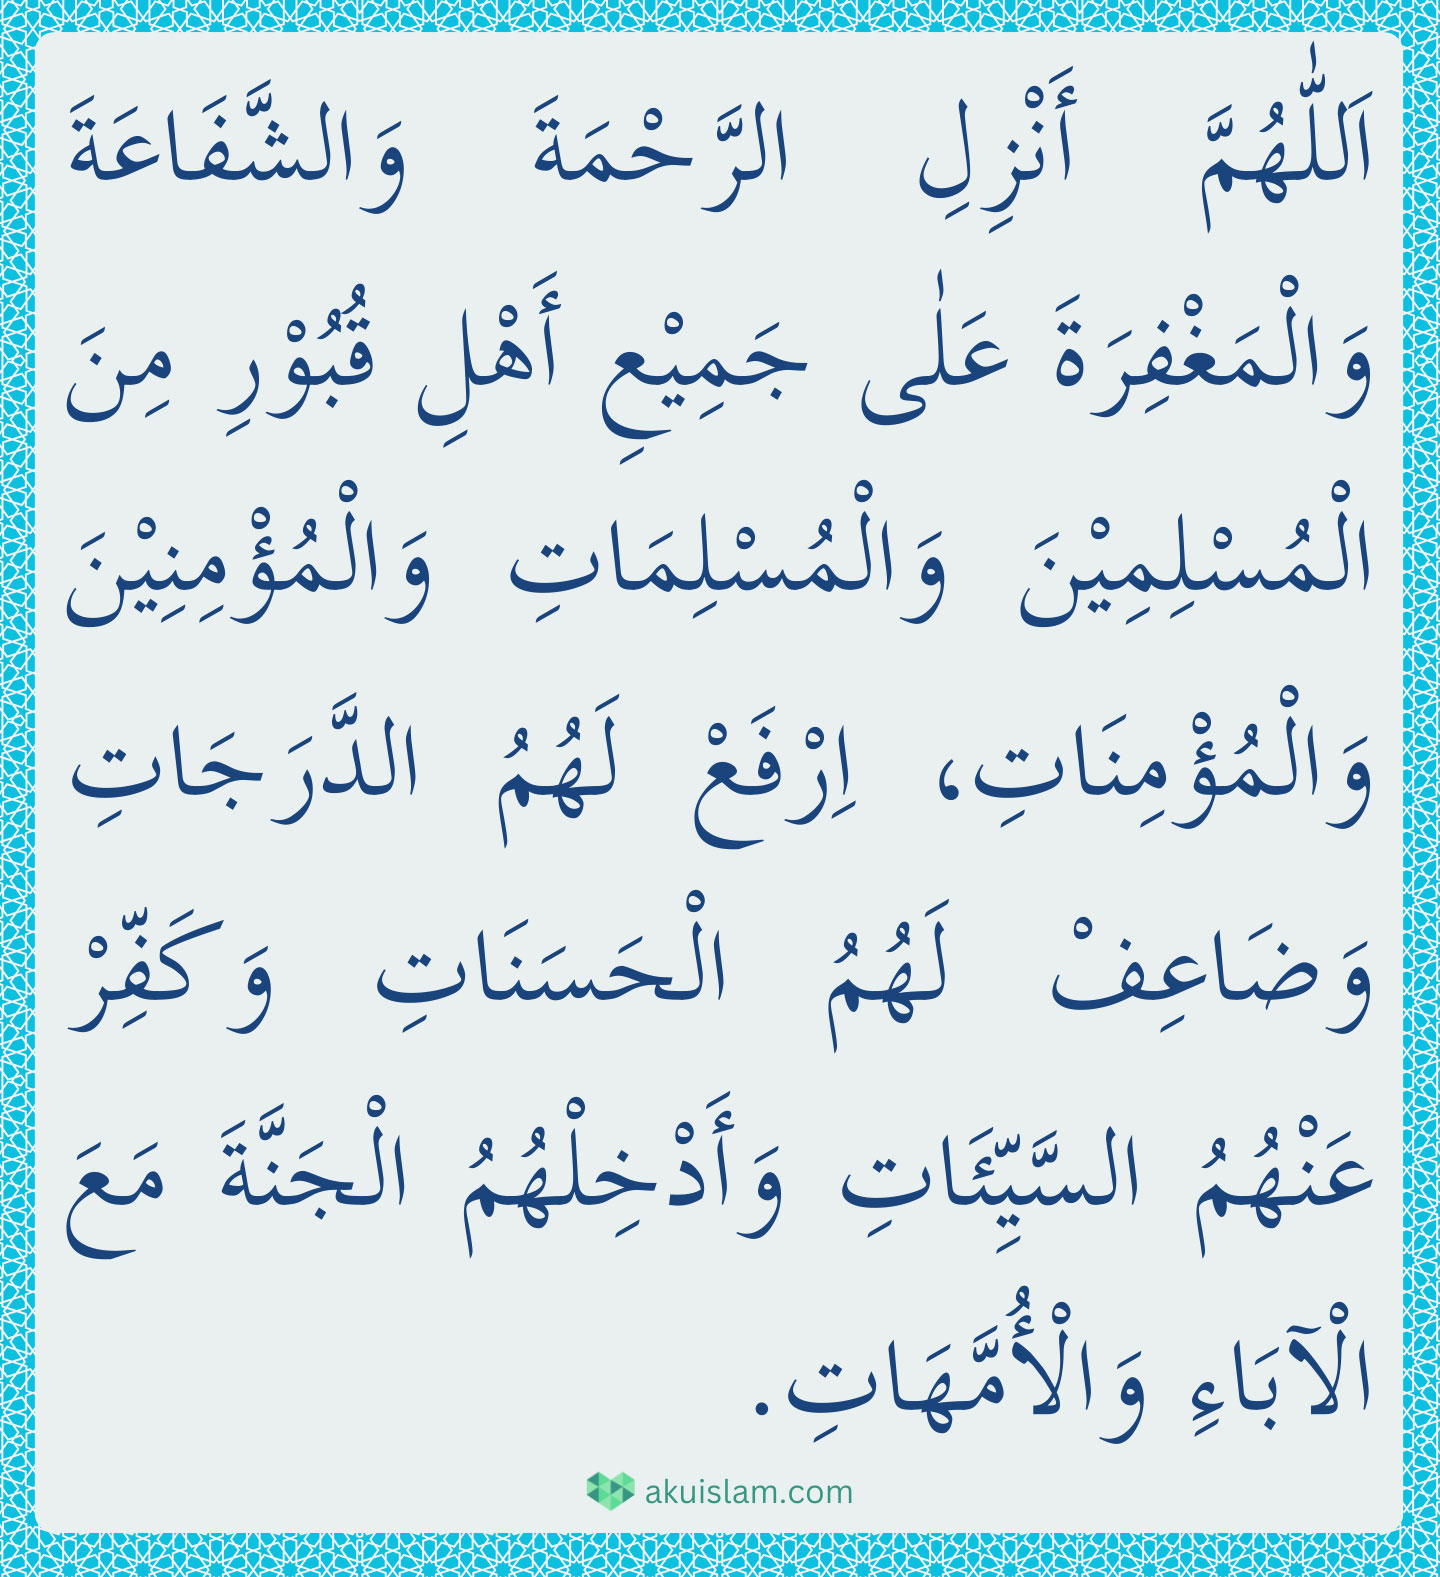 اَللّٰهُمَّ أَنْزِلِ الرَّحْمَةَ وَالشَّفَاعَةَ
وَالْمَغْفِرَةَ عَلٰى جَمِيْعِ أَهْلِ قُبُوْرِ مِنَ
الْمُسْلِمِيْنَ وَالْمُسْلِمَاتِ وَالْمُؤْمِنِيْنَ
وَالْمُؤْمِنَاتِ، اِرْفَعْ لَهُمُ الدَّرَجَاتِ
وَضَاعِفْ لَهُمُ الْحَسَنَاتِ وَكَفِّرْ
عَنْهُمُ السَّيِّئَاتِ وَأَدْخِلْهُمُ الْجَنَّةَ مَعَ
الْآبَاءِ وَالْأُمَّهَاتِ.
akuislam.com